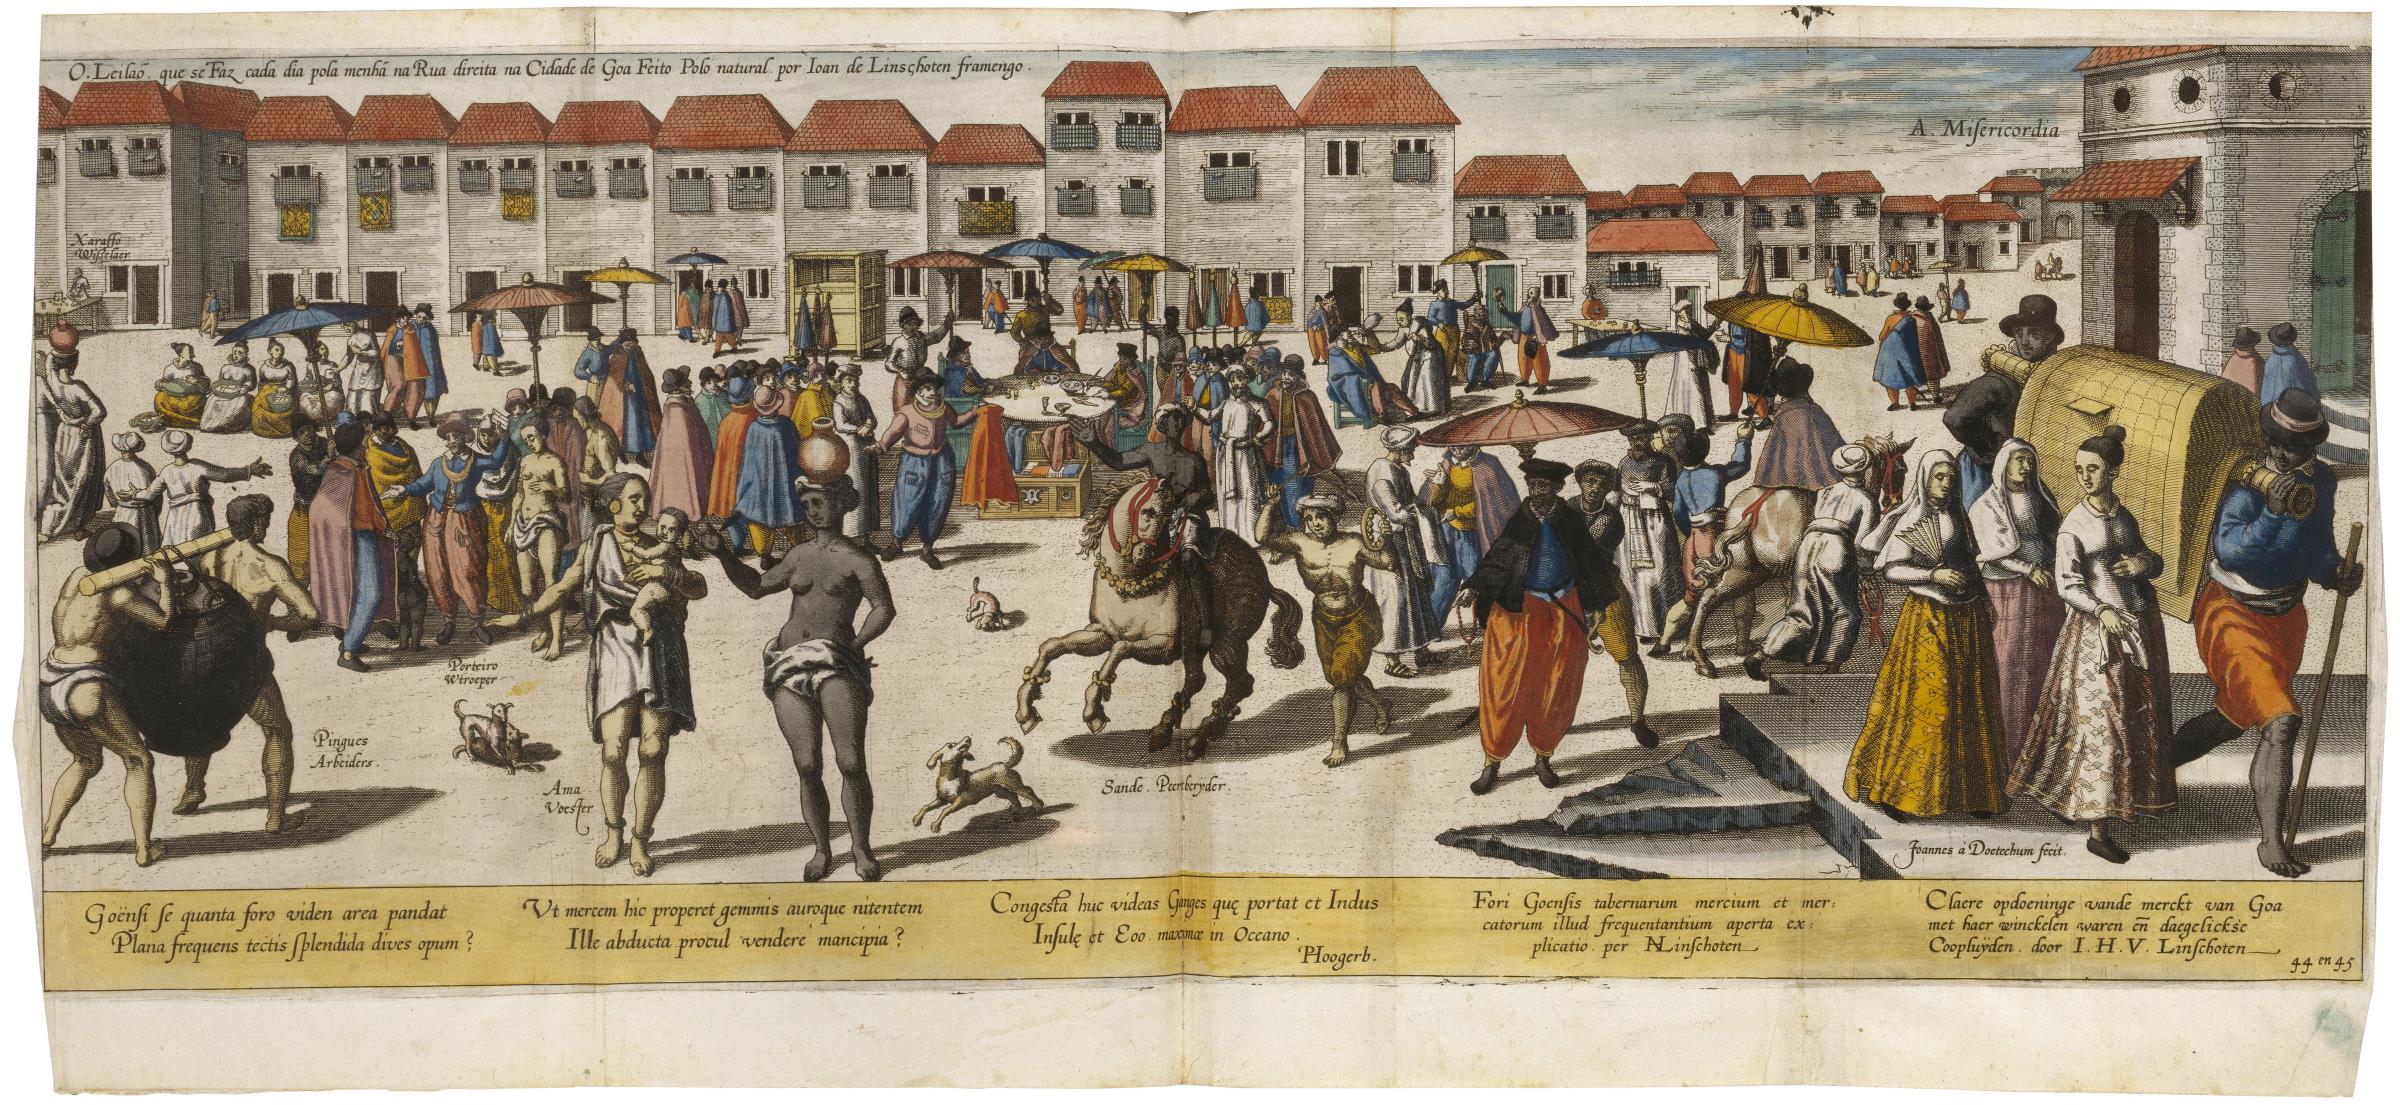 O. Leilaõ. que se Faz cada dia pola menhã na Rua direita na Cidade de Goa Feito Polo natural. por Ioan de Linsçhoten framengo.
A. Miſericordia
Xaraffo
Wiſſelaer
Porteiro
Wtroeper
Pingues
Arbeiders.
Ama
Voeſter
Sande. Peertberÿder.
Joannes á Doetechum fecit.
Goënſi ſe quanta foro viden area pandat
Plana frequens tectis ſplendida dives opum?
Vt mercem hic properet gemmis auroque nitentem
Ille abducta procul vendere mancipia?
Congesta huc videas Ganges quę portat et Indus
Inſulę et Eoo maxumæ in Oceano.
Hoogerb.
Fori Goenſis tabernarum mercium et mer:
catorum illud frequentantium aperta ex:
plicatio per Linſchoten
Claere opdoeninge vande merckt van Goa
met haer winckelen waren eñ daegelickſe
Coopluÿden. door I. H. V. Linſchoten
44 en 45